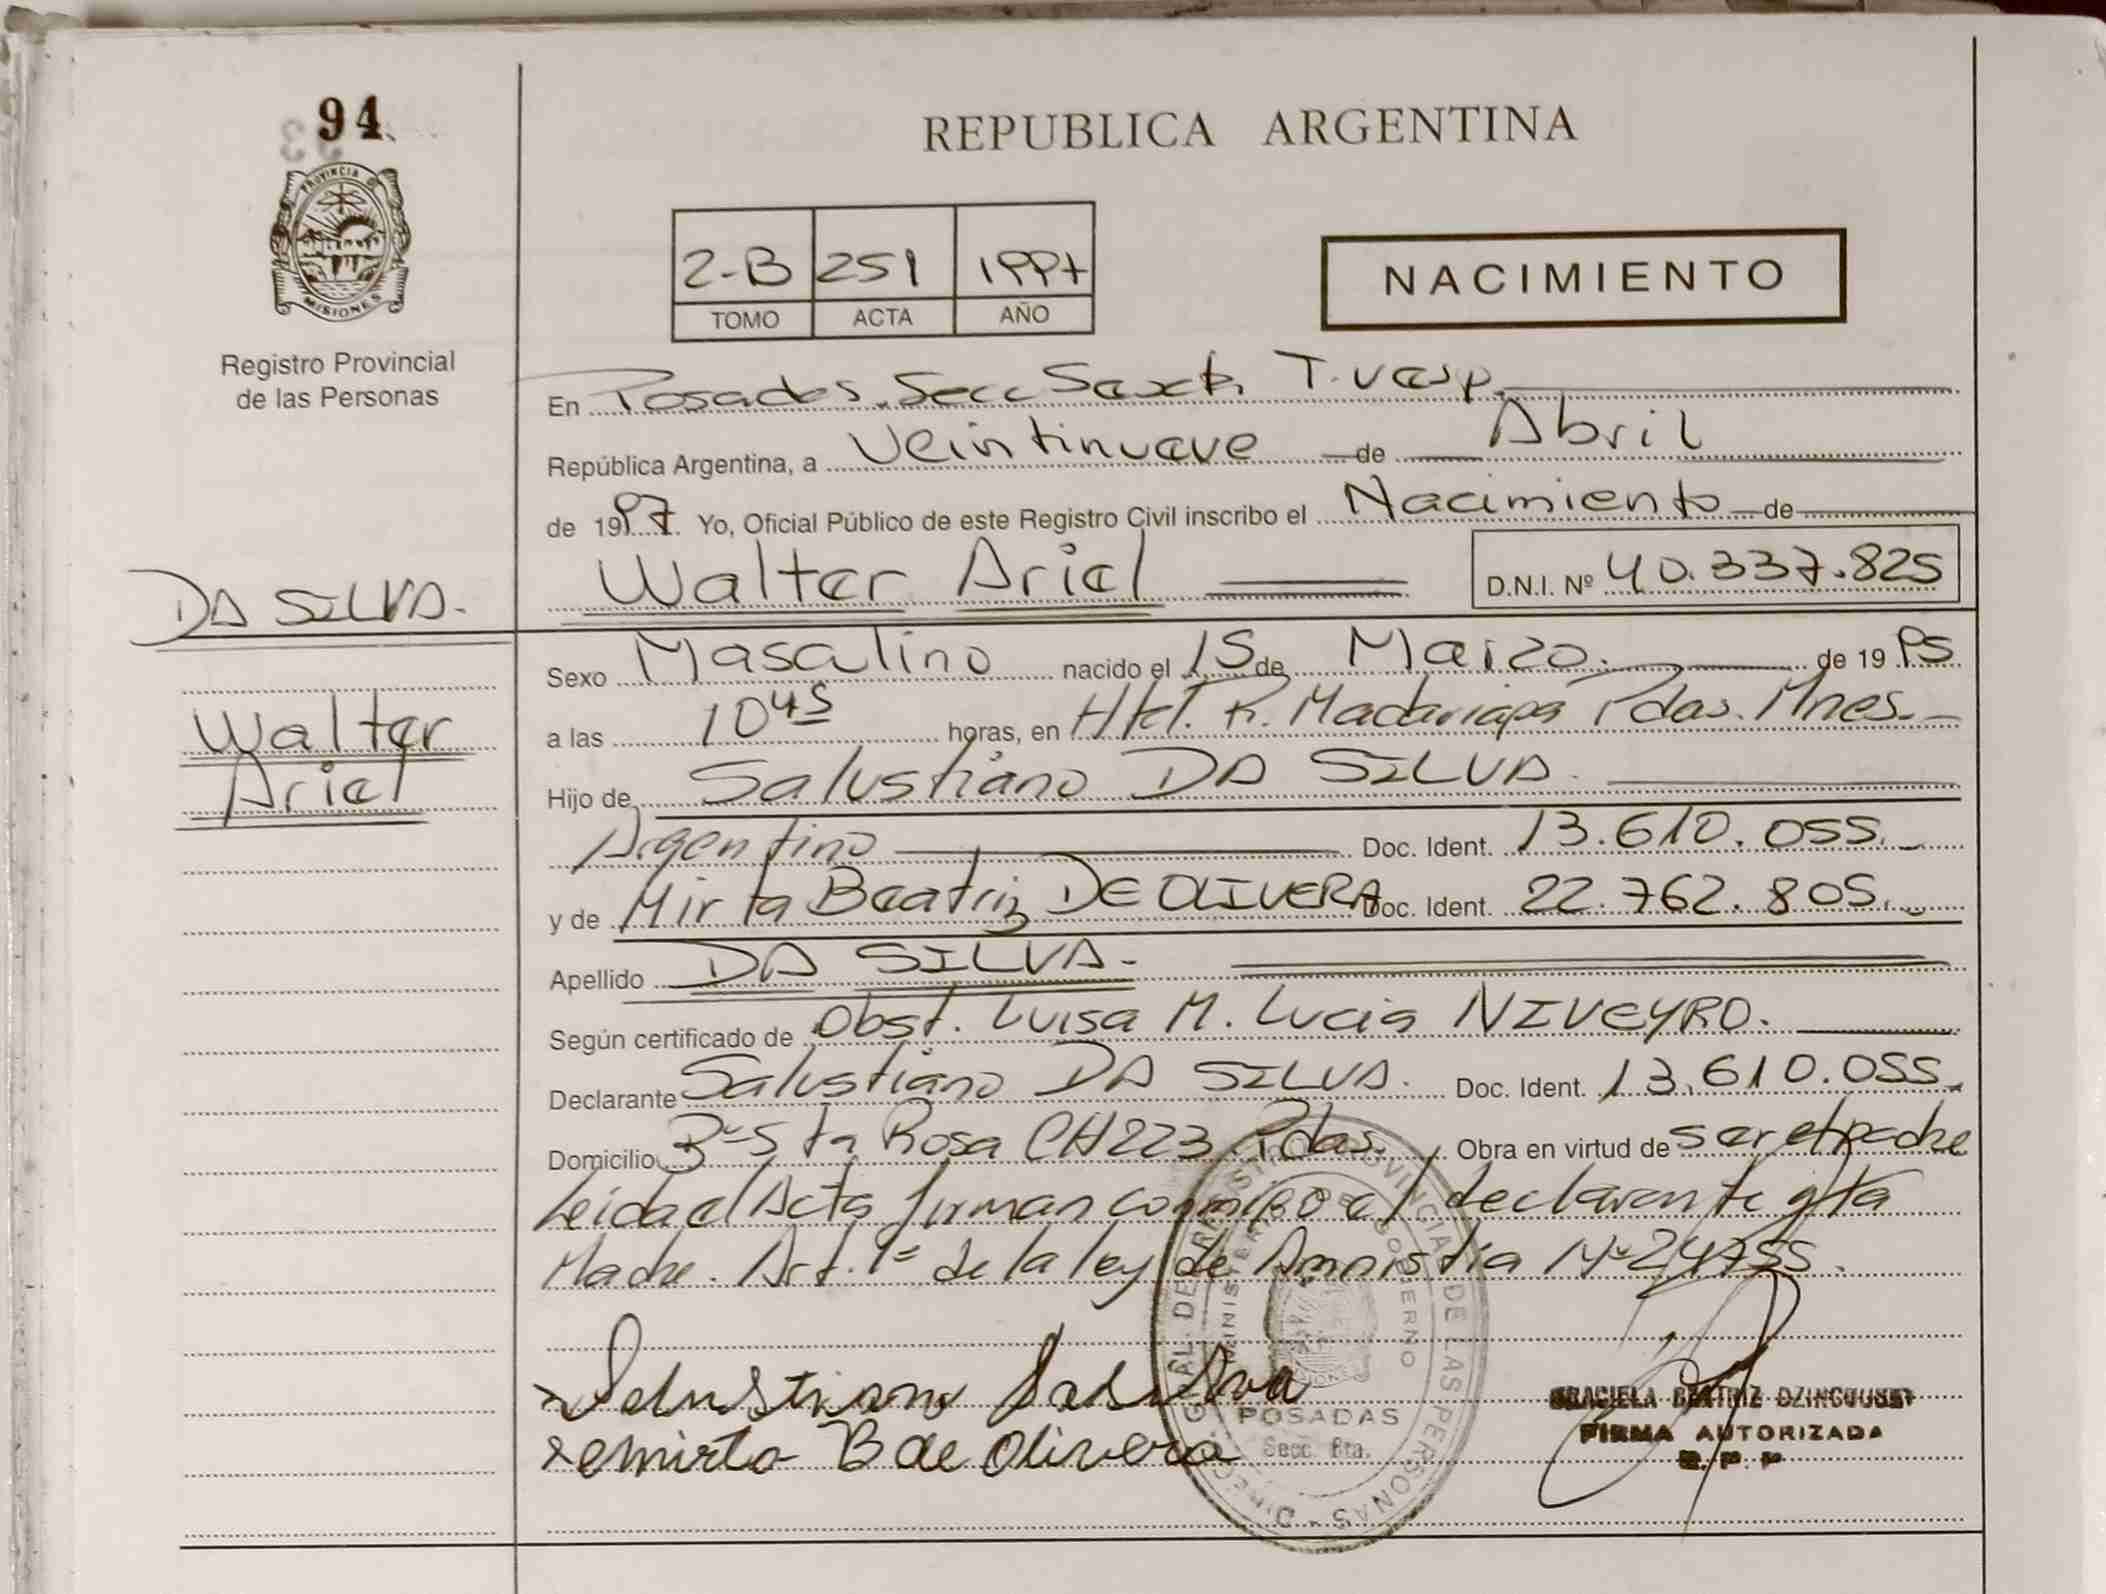 94
PROVINCIA D
MISIONES
Registro Provincial
de las Personas
REPUBLICA ARGENTINA
2-B 251 1997
TOMO ACTA AÑO
NACIMIENTO
En Posadas. Secc Sexta T. vesp.
República Argentina, a Veintinueve de Abril
de 1997. Yo, Oficial Público de este Registro Civil inscribo el Nacimiento de
Walter Ariel D.N.I. Nº 40.337.825
DA SILVA.
Walter
Ariel
Sexo Masculino nacido el 15 de Marzo. de 19 95
a las 10 45 horas, en Htal. R. Madariaga Pdas. Mnes.
Hijo de Salustiano DA SILVA.
Argentino Doc. Ident. 13.610.055.
y de Mirta Beatriz DE OLIVERA Doc. Ident. 22.762.805.
Apellido DA SILVA.
Según certificado de Obst. Luisa M. Lucia NIVEYRO.
Declarante Salustiano DA SILVA. Doc. Ident. 13.610.055.
Domicilio Bº Sta Rosa CH 223 Pdas. Obra en virtud de ser el padre
Leida el Acta firman conmigo el declarante y la
Madre. Art. 1º de la ley de Amnistia Nº 24755.
Salustiano Da Silva
Mirta B de Olivera
DIREC. GRAL. DE REGISTRO PROVINCIAL DE LAS PERSONAS
MINISTERIO DE GOBIERNO
POSADAS
Secc. 6ta.
GRACIELA BEATRIZ
FIRMA AUTORIZADA
R. P. P